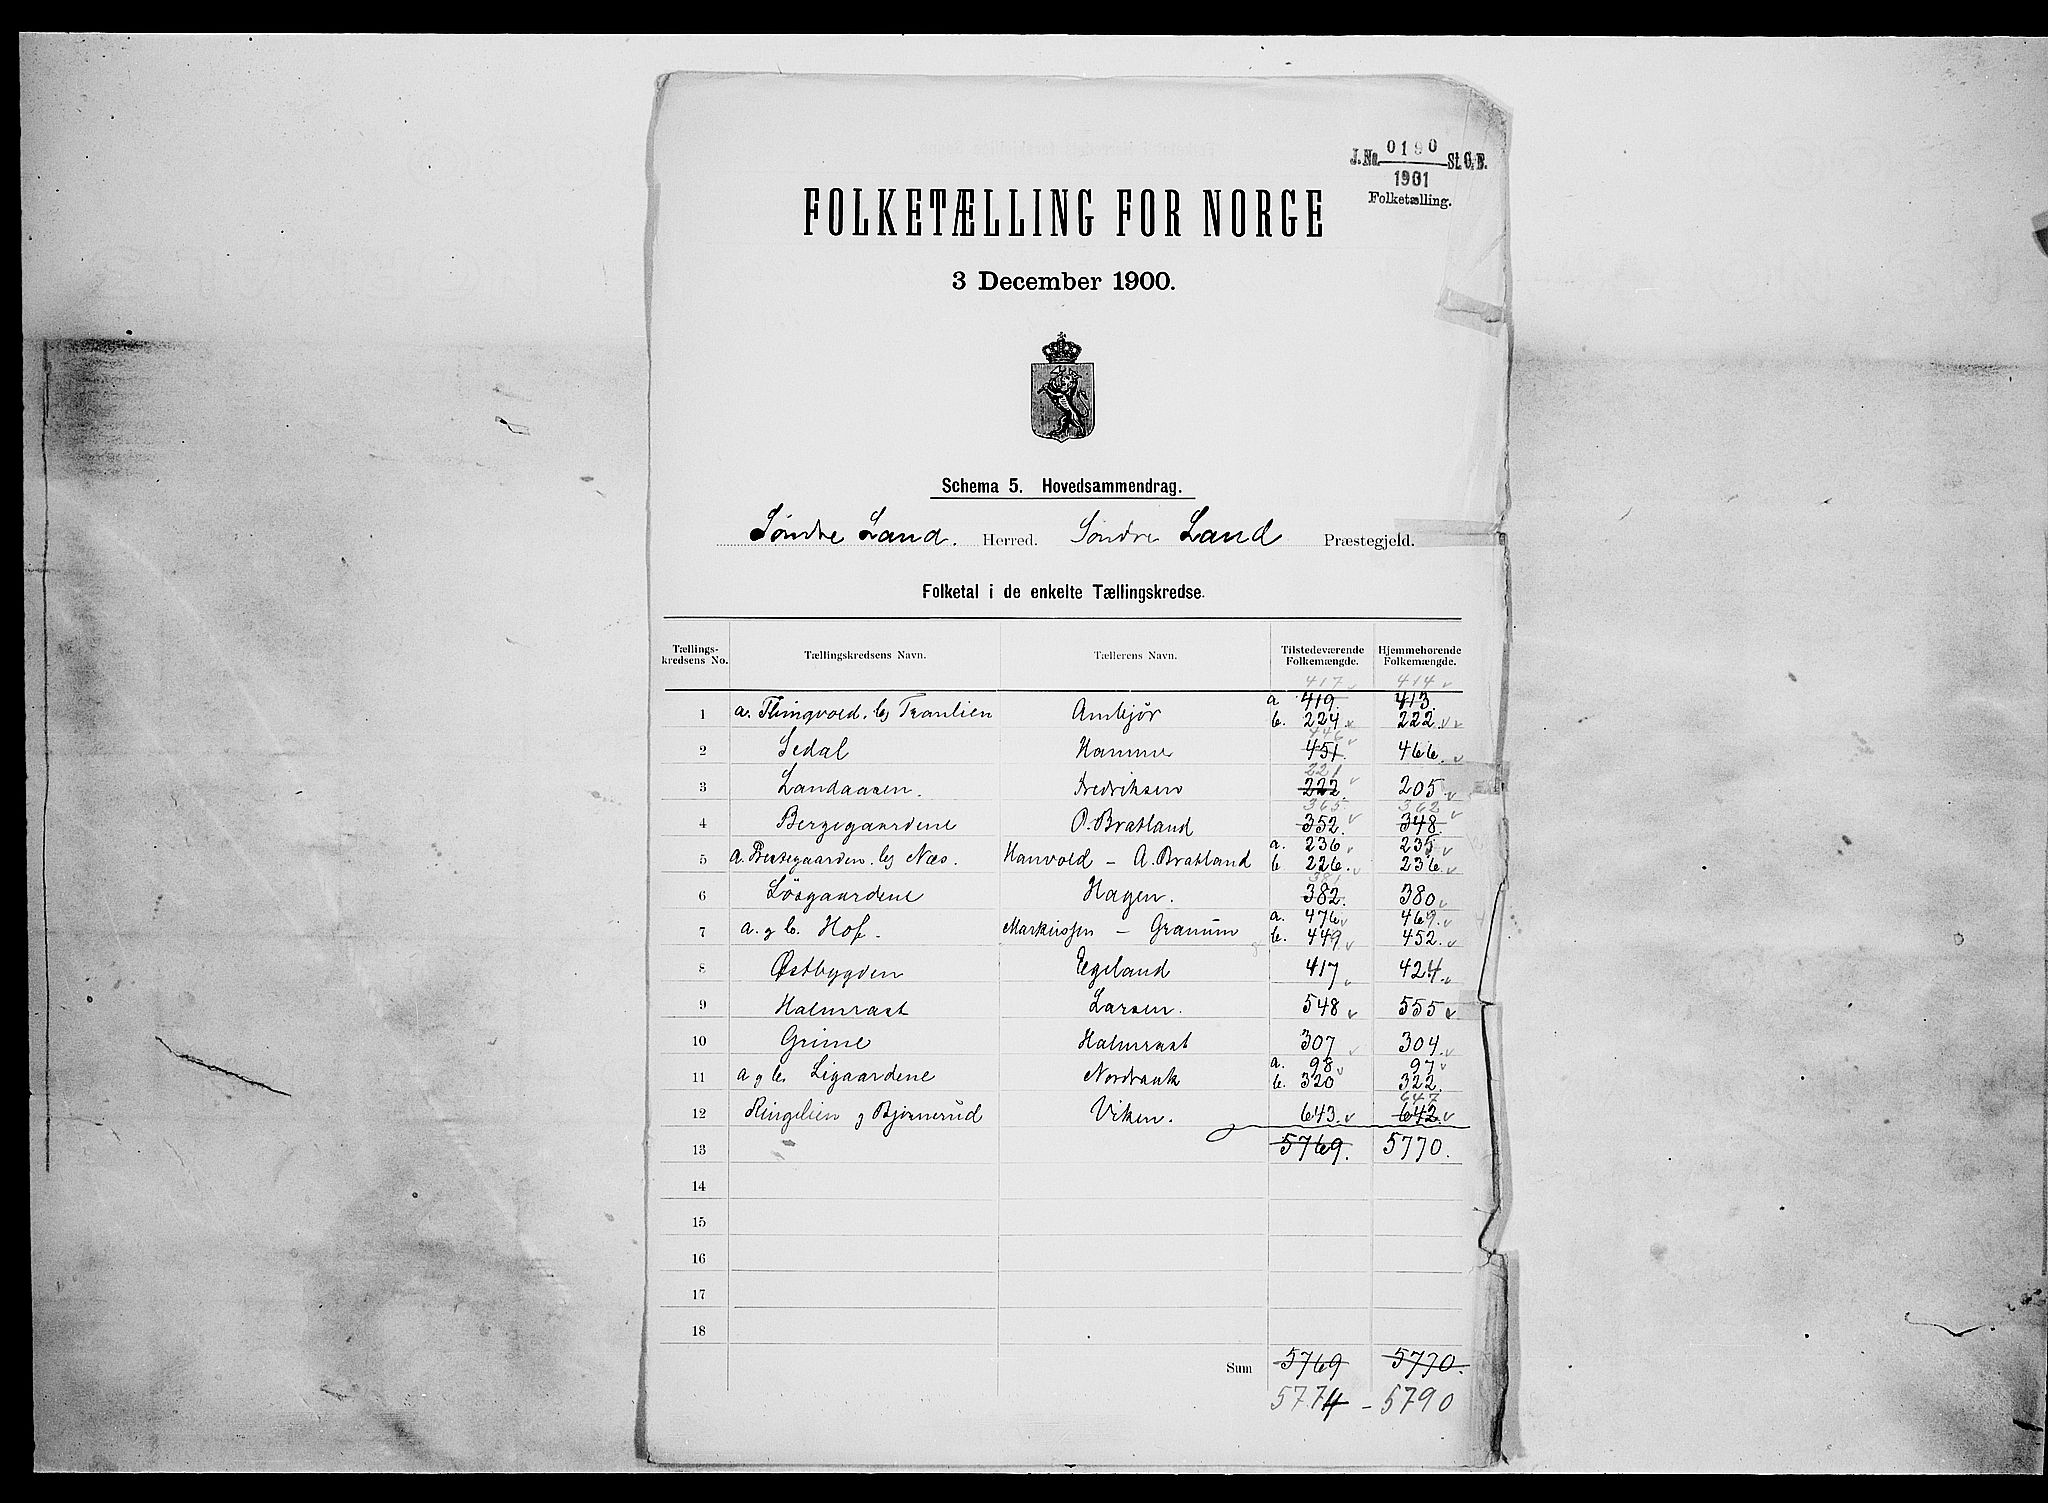 J.No. 0190 St.C.B.
1901
Folketælling.
FOLKETÆLLING FOR NORGE
3 December 1900.
Schema 5. Hovedsammendrag.
Søndre Land. Herred. Søndre Land Præstegjeld.
Folketal i de enkelte Tællingskredse.
Tællings-kredsens No. Tællingskredsens Navn. Tællerens Navn. Tilstedeværende Folkemængde. Hjemmehørende Folkemængde.
417 414
1 a. Flingvold. b) Tranlien Ambjør a 419. 413.
b. 224 222
446
2 Sedal Hammer 451. 466.
221
3 Landaasen. Fredriksen 222. 205.
365. 362
4 Bergegaardene P. Bratland 352. 348.
5 a. Bertegaarden. b) Næs. Hanvold - A. Bratland a. 236 235
b 226. 236.
381
6 Lösgaardene Hagen. 382. 380
7 a. g b. Hof. Markussen - Granum a. 476 469.
b. 449 452.
8 Østbygden Egeland 417 424
9 Halmrast Larsen. 548 555
10 Grime Halmrast 307 304
11 a g b. Ligaardene Nordrauk a. 98 97
b. 320 322.
647
12 Ringelien g Bjørnerud Viken. 643. 642.
13 5769. 5770.
14
15
16
17
18
Sum 5769 5770.
5774 - 5790